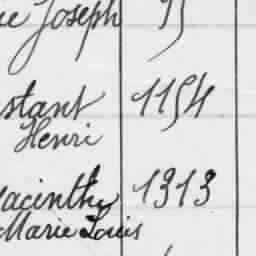 Joseph
stant 1154
Henri
acinthe 1313
Marie Louis